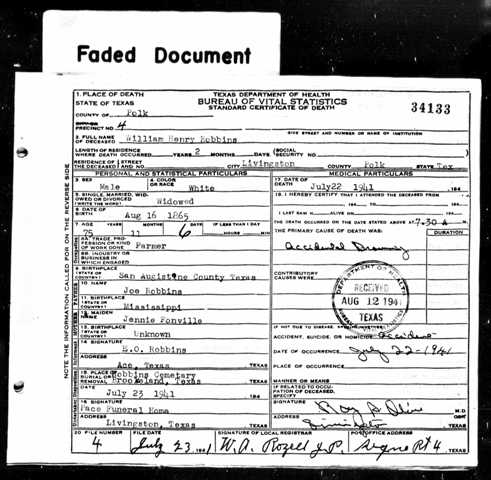 Faded Document
1. PLACE OF DEATH
STATE OF TEXAS
COUNTY OF Polk
PRECINCT NO. 4
TEXAS DEPARTMENT OF HEALTH
BUREAU OF VITAL STATISTICS
STANDARD CERTIFICATE OF DEATH
34133
GIVE STREET AND NUMBER OR NAME OF INSTITUTION
2. FULL NAME OF DECEASED William Henry Robbins
LENGTH OF RESIDENCE WHERE DEATH OCCURRED YEARS 2 MONTHS DAYS SOCIAL SECURITY NO.
RESIDENCE OF THE DECEASED STREET CITY Livingston COUNTY Polk STATE Tex
PERSONAL AND STATISTICAL PARTICULARS
MEDICAL PARTICULARS
3. SEX Male
4. COLOR OR RACE White
17. DATE OF DEATH July22 1941 194
5. SINGLE, MARRIED, WIDOWED OR DIVORCED (WRITE THE WORD) Widowed
18. I HEREBY CERTIFY THAT I ATTENDED THE DECEASED FROM
6. DATE OF BIRTH Aug 16 1865
I LAST SAW H ALIVE ON 194
7. AGE 75 11 6 IF LESS THAN 1 DAY
YEARS MONTHS DAYS HOURS MIN.
THE DEATH OCCURRED ON THE DATE STATED ABOVE AT 7.30 A M.
THE PRIMARY CAUSE OF DEATH WAS:
DURATION
8A. TRADE, PROFESSION OR KIND OF WORK DONE Farmer
Accidental Drowning
8B. INDUSTRY OR BUSINESS IN WHICH ENGAGED
9. BIRTHPLACE (STATE OR COUNTRY) San Aucistine County Texas
CONTRIBUTORY CAUSES WERE
10. NAME Joe Robbins
11. BIRTHPLACE (STATE OR COUNTRY) Mississippi
DEPARTMENT OF HEALTH
RECEIVED
AUG 12 1941
TEXAS
BUREAU OF VITAL STATISTICS
12. MAIDEN NAME Jennie Fonville
13. BIRTHPLACE (STATE OR COUNTRY) Unknown
IF NOT DUE TO DISEASE, SPECIFY WHETHER:
ACCIDENT, SUICIDE, OR HOMICIDE Accident
14. SIGNATURE H.O. Robbins
DATE OF OCCURRENCE July 22-1941
ADDRESS Ace, Texas TEXAS
PLACE OF OCCURRENCE
15. PLACE OF BURIAL OR REMOVAL Robbins Cemetary
Brookeland, Texas TEXAS
MANNER OR MEANS
IF RELATED TO OCCUPATION OF DECEASED, SPECIFY
DATE July 23 1941
16. SIGNATURE Pace Funeral Home
SIGNATURE M.D.
ADDRESS Livingston, Texas TEXAS
ADDRESS TEXAS
20. FILE NUMBER FILE DATE SIGNATURE OF LOCAL REGISTRAR POSTOFFICE ADDRESS
4 July 23, 1941 W. A. Rozell J.P. Rt 4
NOTE THE INFORMATION CALLED FOR ON THE REVERSE SIDE